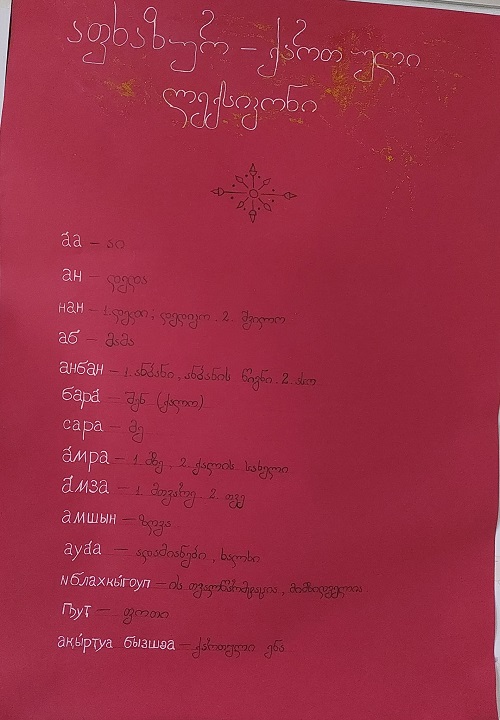 აფხაზურ – ქართული
ლექსიკონი
а́а – აი
ан – დედა
нан – 1. დედი, დედიკო. 2. შვილო
аб – მამა
анбан – 1. ანბანი, ანბანის წიგნი. 2. ასო
бара́ – შენ (ქალო)
сара – მე
а́мра – 1. მზე, 2. ქალის სახელი
а́мза – 1. მთვარე. 2. თვე
амшын – ზღვა
ауа́а – ადამიანები, ხალხი
иблахкы́гоуп – ის თვალწარმტაცია, მიმზიდველია
Ҧуҭ – ფოთი
ақы́рҭуа бызшәа – ქართული ენა